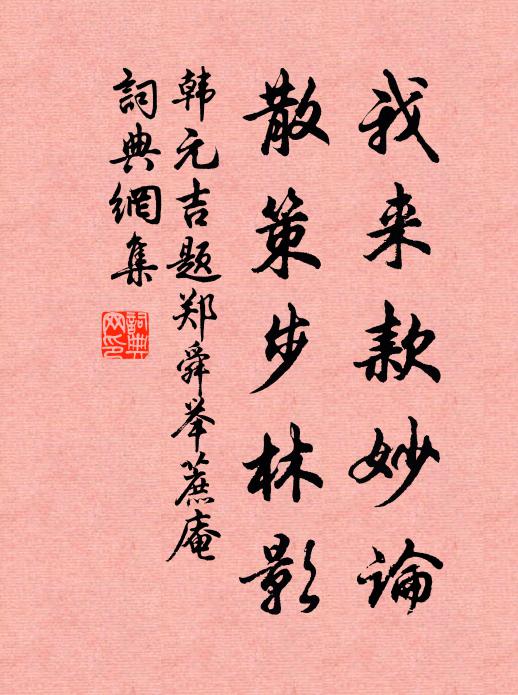 我来款妙論
散策步林影
韩元吉题郑舜举蔗庵
詞典網集
詞典網印